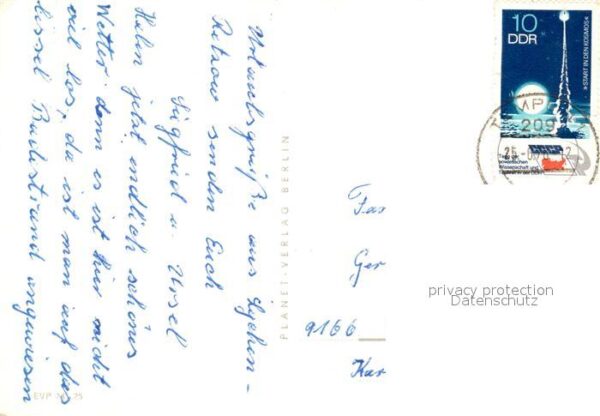 Urlaubsgrüße aus Lychen-
Retzow senden Euch
Siegfried u. Ursel
Haben jetzt endlich schönes
Wetter, denn es ist hier nicht
viel los, da ist man auf das
bissel Badestrand angewiesen
EVP
PLANET-VERLAG BERLIN
10
DDR
»START IN DEN KOSMOS«
209
Tage der
sowjetischen
Wissenschaft und
Technik in der DDR
Fam
Ger
9166
Kar
privacy protection
Datenschutz